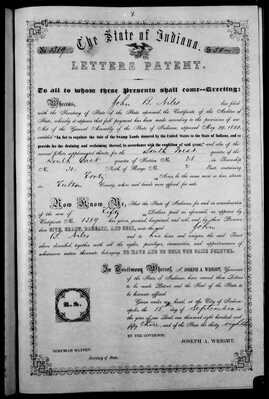 No. 1319
$ 50
The State of Indiana.
LETTERS PATENT.
To all to whom these Presents shall come—Greeting:
Whereas, John B. Niles has filed
with the Secretary of State of the State aforesaid the Certificate of the Auditor of
State, whereby it appears that full payment has been made according to the provisions of an
Act of the General Assembly of the State of Indiana, approved May 29, 1852,
entitled "An Act to regulate the sale of the Swamp Lands donated by the United States to the State of Indiana, and to
provide for the draining and reclaiming thereof, in accordance with the condition of said grant," and also of the
South West quarter of the
South East quarter of Section No.
North of Range No. East containing
Forty Acres,
Fulton County, when said lands were offered for sale.
Now Know Ye, That the State of Indiana, for and in consideration
of the sum of Fifty Dollars paid as aforesaid, as appears by
Certificate No. 1319 has given, granted, bargained and sold, and by these Presents
does GIVE, GRANT, BARGAIN, AND SELL, unto the said John
B. Niles and to his heirs and assigns, the said Tract
above described, together with all the rights, privileges, immunities, and appurtenances of
whatsoever nature thereunto belonging TO HAVE AND TO HOLD THE SAME FOREVER.
In Testimony Whereof, I, JOSEPH A. WRIGHT, Governor
of the State of Indiana, have caused these Letters
to be made Patent, and the Seal of the State to
be hereunto affixed.
Given under my hand, at the City of Indiana-
polis the 15 day of September in
the year of our Lord one thousand eight hundred and
fifty and of the State the thirty eighth
BY THE GOVERNOR,
JOSEPH A. WRIGHT.
L.S.
NEHEMIAH HAYDEN
Secretary of State.